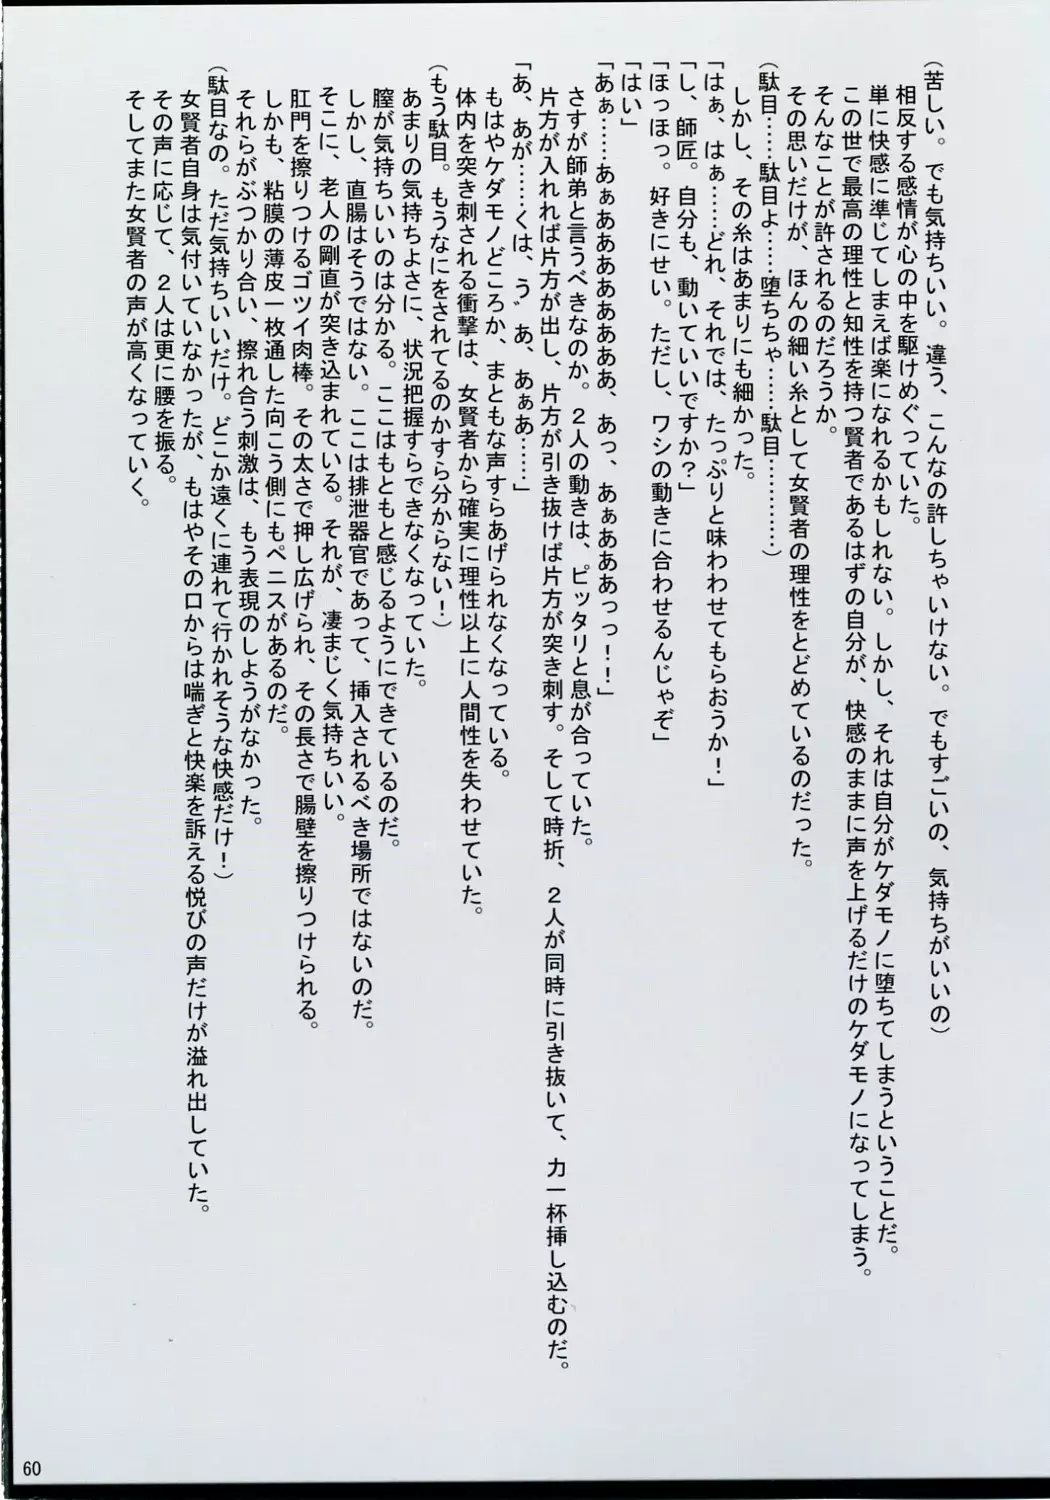 （苦しい。でも気持ちいい。違う、こんなの許しちゃいけない。でもすごいの、気持ちがいいの）
相反する感情が心の中を駆けめぐっていた。
単に快感に準じてしまえば楽になれるかもしれない。しかし、それは自分がケダモノに堕ちてしまうということだ。
この世で最高の理性と知性を持つ賢者であるはずの自分が、快感のままに声を上げるだけのケダモノになってしまう。
そんなことが許されるのだろうか。
その思いだけが、ほんの細い糸として女賢者の理性をとどめているのだった。
（駄目……駄目よ……堕ちちゃ……駄目…………）
しかし、その糸はあまりにも細かった。
「はぁ、はぁ……どれ、それでは、たっぷりと味わわせてもらおうか！」
「し、師匠。自分も、動いていいですか？」
「ほっほっ。好きにせい。ただし、ワシの動きに合わせるんじゃぞ」
「はい」
「あぁ……あぁああああああああ、あっ、あぁあああっっ！！」
さすが師弟と言うべきなのか。２人の動きは、ピッタリと息が合っていた。
片方が入れれば片方が出し、片方が引き抜けば片方が突き刺す。そして時折、２人が同時に引き抜いて、力一杯挿し込むのだ。
「あ、あが……くは、う゛あ、あぁあ……」
もはやケダモノどころか、まともな声すらあげられなくなっている。
体内を突き刺される衝撃は、女賢者から確実に理性以上に人間性を失わせていた。
（もう駄目。もうなにをされてるのかすら分からない！）
あまりの気持ちよさに、状況把握すらできなくなっていた。
膣が気持ちいいのは分かる。ここはもともと感じるようにできているのだ。
しかし、直腸はそうではない。ここは排泄器官であって、挿入されるべき場所ではないのだ。
そこに、老人の剛直が突き込まれている。それが、凄まじく気持ちいい。
肛門を擦りつけるゴツイ肉棒。その太さで押し広げられ、その長さで腸壁を擦りつけられる。
しかも、粘膜の薄皮一枚通した向こう側にもペニスがあるのだ。
それらがぶつかり合い、擦れ合う刺激は、もう表現のしようがなかった。
（駄目なの。ただ気持ちいいだけ。どこか遠くに連れて行かれそうな快感だけ！）
女賢者自身は気付いていなかったが、もはやその口からは喘ぎと快楽を訴える悦びの声だけが溢れ出していた。
その声に応じて、２人は更に腰を振る。
そしてまた女賢者の声が高くなっていく。
60